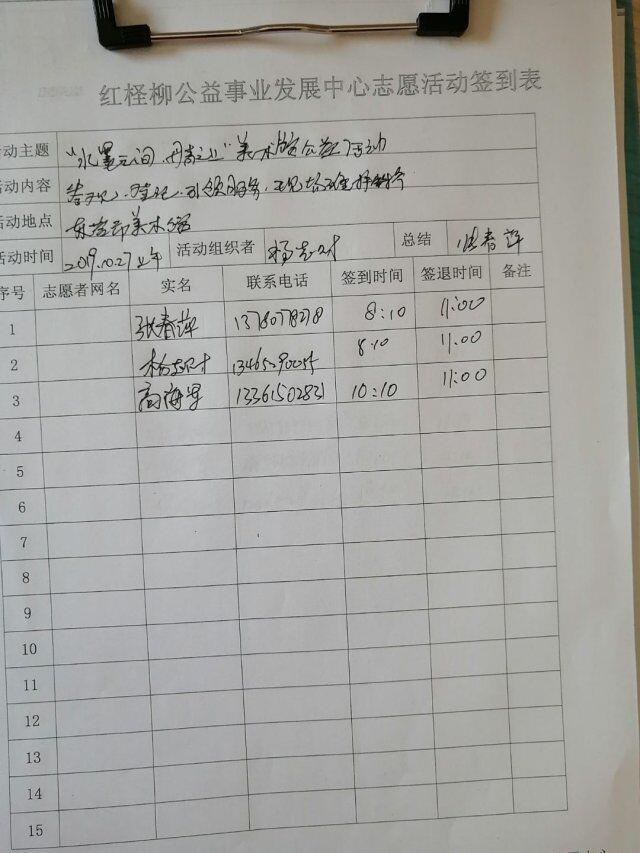 红柽柳公益事业发展中心志愿活动签到表
活动主题 "水墨之间 丹青之上"美术馆公益活动
活动内容
活动地点 东营市美术馆
活动时间 2019.10.27上午 活动组织者 总结 张春萍
序号 志愿者网名 实名 联系电话 签到时间 签退时间 备注
1 张春萍 8:10 11:00
2 8:10 11:00
3 高海军 13361502831 10:10 11:00
4
5
6
7
8
9
10
11
12
13
14
15